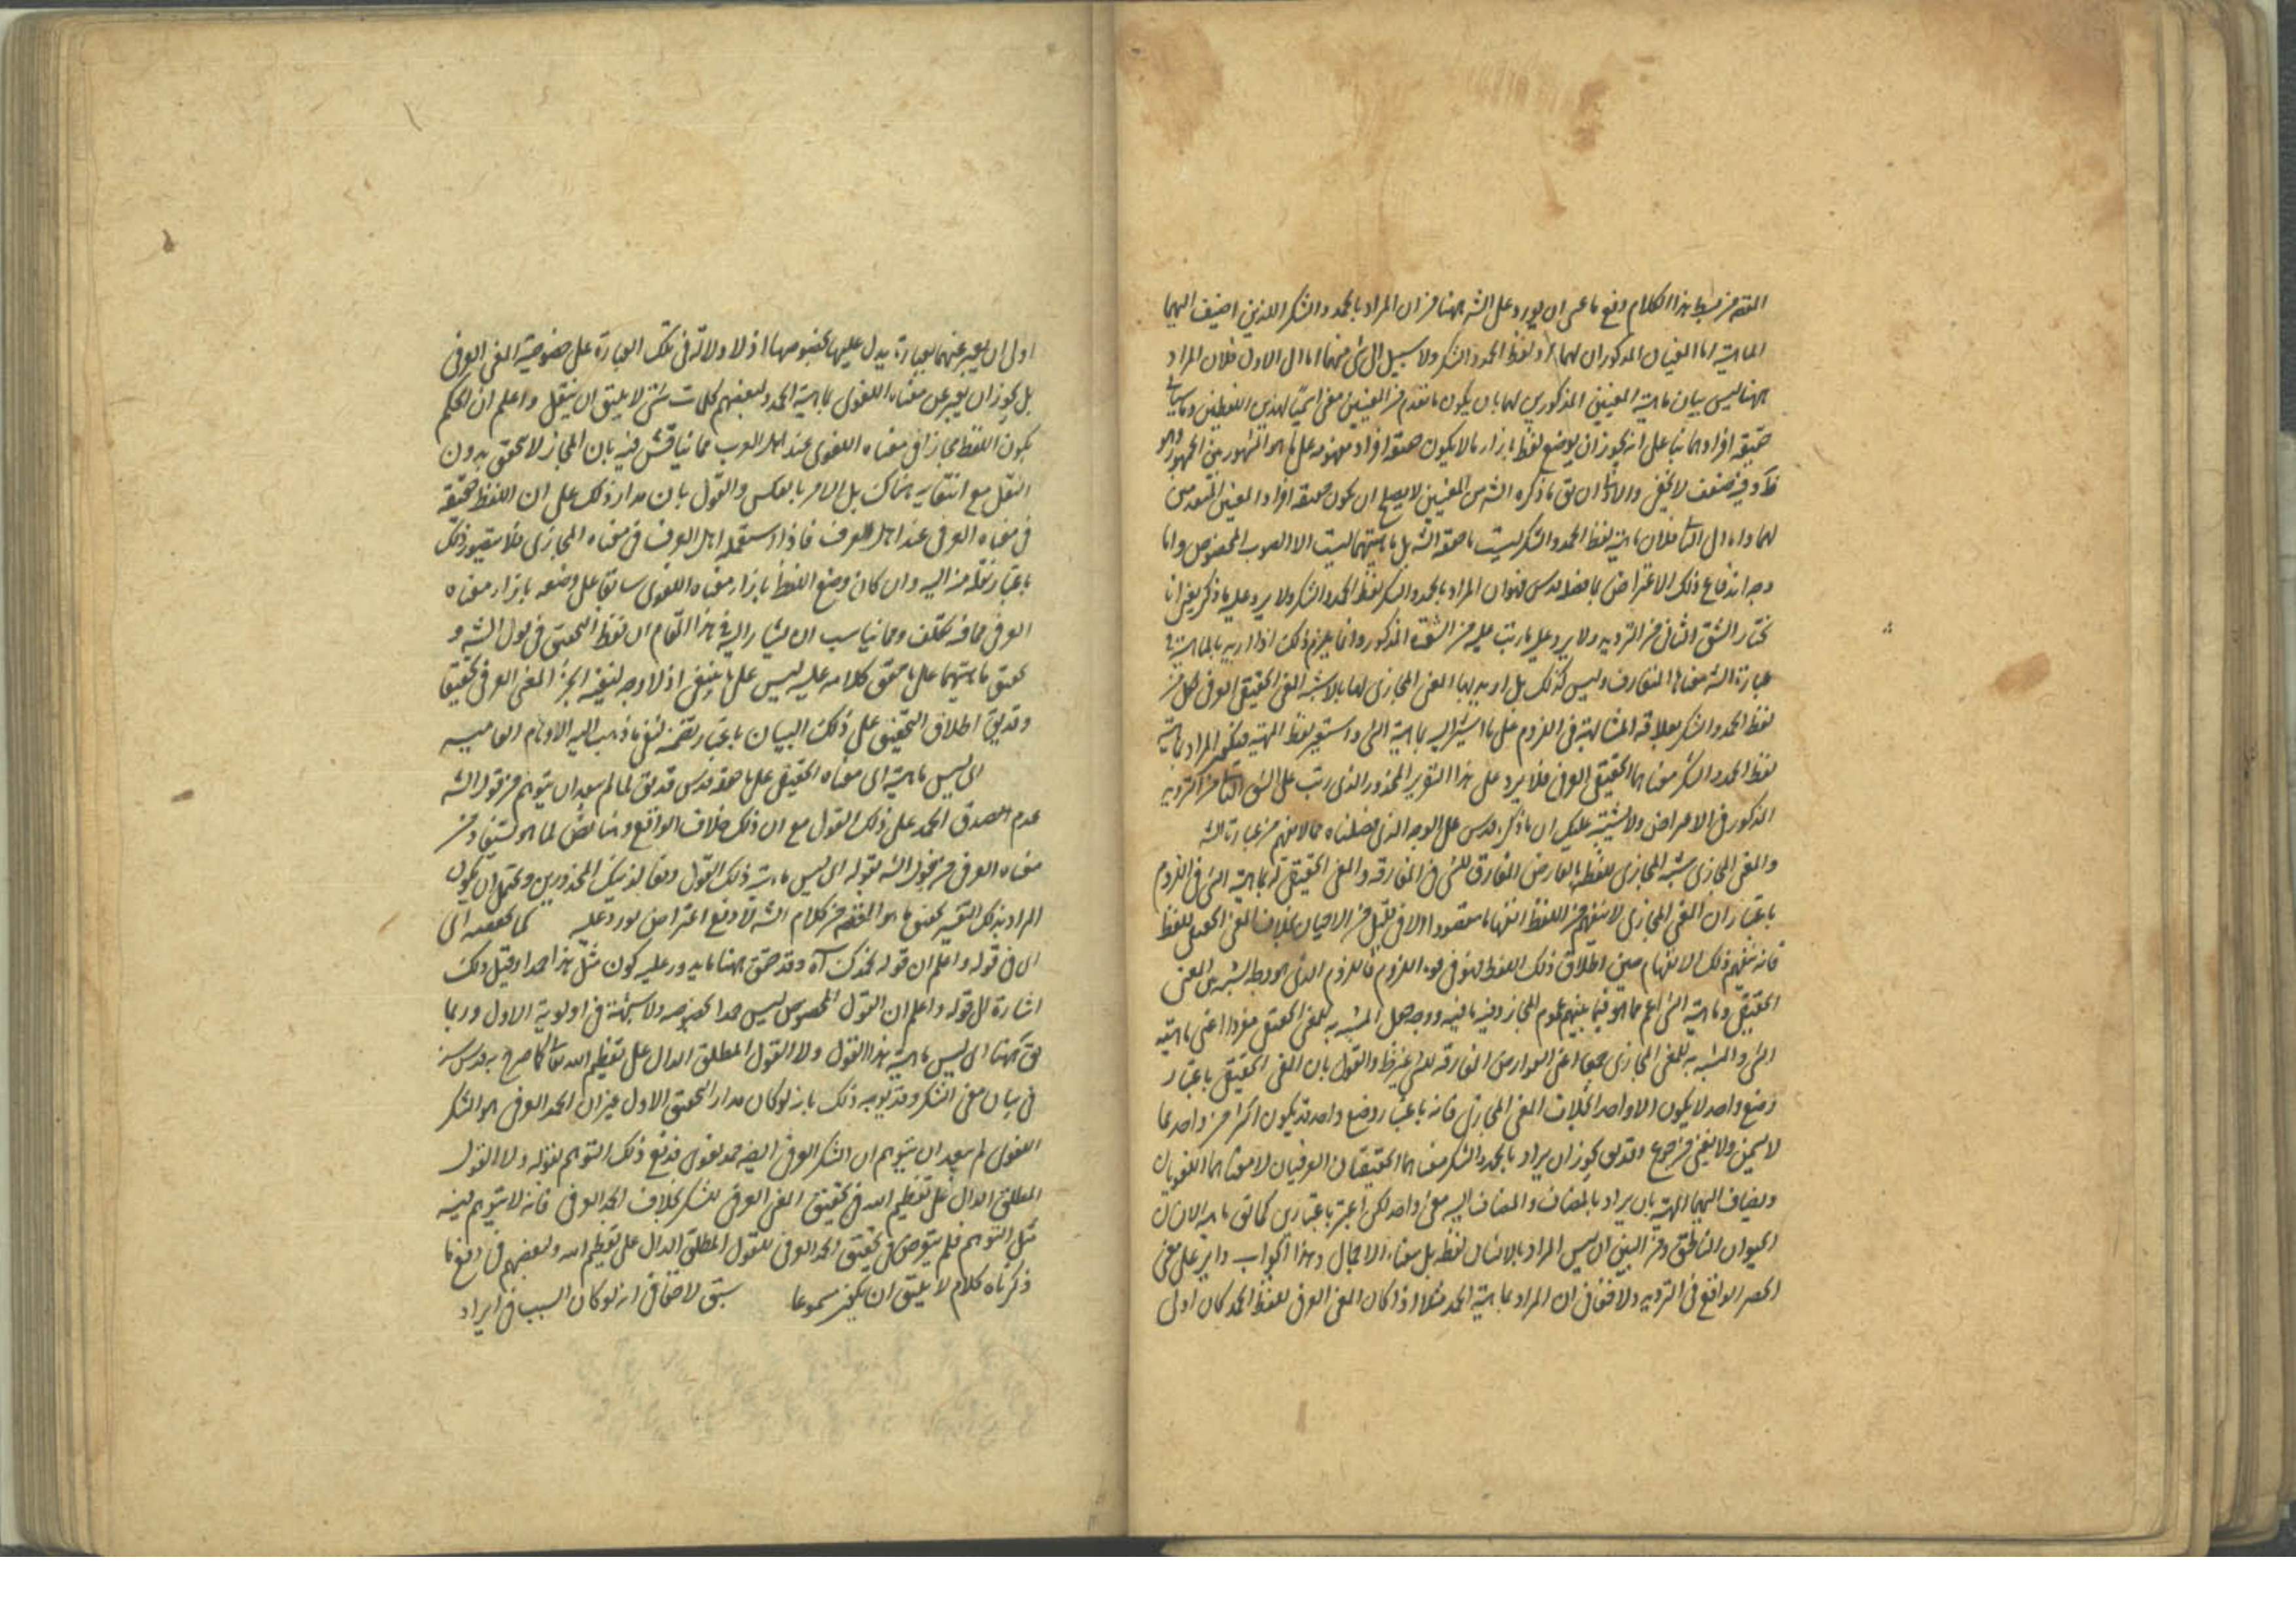 المقصود من هذا الكلام دفع ما عسى ان يورد على الشه ههنا من ان المراد بالحمد والشكر اللذين اضيف اليهما
الماهية اما المعنيان المذكوران لهما او لفظ الحمد والشكر ولا سبيل الى شئ منهما اما الى الاول فلان المراد
ههنا ليس بيان ماهية المعنيين المذكورين لهما بان يكون ما تقدم من المعنيين معنى لهذين اللفظين
حقيقة افرادهما بناء على انه يجوز ان يوضع لفظ بازاء ما لا يكون حقيقة افراد مفهومه على ما هو المشهور بين الجمهور
فيه ضعف لا يخفى والا ان يق ما ذكره الشه من المعنيين لا يصلح ان يكون حقيقة افراد المعنيين المتقدمين
لهما واما الى الثانى فلان ماهية لفظ الحمد والشكر ليست ما حققه الشه بل ماهيتهما ليست الا الصوت المخصوص واما
وجه اندفاع ذلك الاعتراض بما فصله قدس فهو ان المراد بالحمد والشكر لفظ الحمد والشكر ولا يرد عليه ما ذكر يعنى انا
نختار الشق الثانى من الترديد ولا يرد عليه ما رتب عليه من الشق المذكور وانما يلزم ذلك اذا اريد بالماهية فى
عبارة الشه معناها المتعارف وليس كذلك بل اريد بها المعنى المجازى لها بالا شبه المعنى الحقيقى العرفى لكل من
لفظ الحمد والشكر بعلاقة المشابهة فى اللزوم على ما اشير اليه بماهية الشئ واستعير لفظ المهية فيكون المراد بماهية
لفظ الحمد والشكر معناهما الحقيقى العرفى فلا يرد على هذا التقرير المحذور الذى رتب على الشق الثانى من الترديد
المذكور فى الاعتراض ولا يشتبه عليك ان ما ذكره قدس على الوجه الذى فصلناه مما لا يفهم من عبارة الشه
والمعنى المجازى شبه المجازى للفظ بالعارض المفارق للشئ فى المفارقة والمعنى الحقيقى له بماهية الشئ فى اللزوم
باعتبار ان المعنى المجازى لا ينفهم من اللفظ انفهاما مقصودا الا فى قليل من الاحيان بخلاف المعنى الحقيقى للفظ
فانه ينفهم ذلك الانفهام حين اطلاق ذلك اللفظ فهو فى قوة اللزوم فاللزوم الذى هو وجه الشبه بين المعنى
الحقيقى وماهية الشئ اعم مما هو فيما بينهم بعموم المجاز وفيه ما فيه ووجه جعل المشبه به للمعنى الحقيقى مفردا اعنى ماهية
الشئ والمشبه به للمعنى المجازى جمعا اعنى العوارض المفارقة للشئ غير خفى والقول بان المعنى الحقيقى باعتبار
وضع واحد لا يكون الا واحدا بخلاف المعنى المجازى فانه باعتبار وضع واحد قد يكون اكثر من واحد مما
لا يسمن ولا يغنى من جوع وقد يق يجوز ان يراد بالحمد والشكر معناهما الحقيقيان العرفيان لا معناهما اللغويان
ويضاف اليهما المهية بان يراد بالمضاف والمضاف اليه معنى واحد لكن اعتبر باعتبارين كما يق ماهية الانسان
الحيوان الناطق ومن البين ان ليس المراد بالانسان لفظه بل معناه الاجمال وهذا الجواب دائر على معنى
الحصر الواقع فى الترديد ولا خفاء فى ان المراد بماهية الحمد مثلا اذا كان المعنى العرفى للفظ الحمد كان اولى
اولى ان يعبر عنهما بعبارة يدل عليها بخصوصهما اذ لا دلالة فى تلك العبارة على خصوصية المعنى العرفى
بل يجوز ان يعبر عن معناه اللغوى بماهية الحمد ولبعضهم كلمات شتى لا يليق ان ينقل واعلم ان الحكم
بكون اللفظ مجازا فى معناه اللغوى عند اهل العرب مما يناقش فيه بان المجاز لا يتحقق بدون
النقل مع انتفائه هناك بل الامر بالعكس والقول بان مدار ذلك على ان اللفظ حقيقة
فى معناه العرفى عند اهل العرف فاذا استعمله اهل العرف فى معناه المجازى فلا يتصور ذلك
باعتبار نقله منه اليه وان كان وضع اللفظ بازاء معناه اللغوى سابقا على وضعه بازاء معناه
العرفى مما فيه تكلف ومما يناسب ان يشار اليه فى هذا المقام ان لفظ التحقيق فى قول الشه و
تحقيق ماهيتهما على ما حقق كلامه عليه ليس على ما ينبغى اذ لا وجه لتسمية المعنى العرفى تحقيقا
وقد يق اطلاق التحقيق على ذلك البيان باعتبار تضمنه لنفى ما ذهب اليه الاوهام العامية
اى ليس ماهية اى معناه الحقيقى على ما حققه قدس قد يق لما لم يبعد ان يتوهم من قول الشه
عدم صدق الحمد على ذلك القول مع ان ذلك خلاف الواقع ومناقض لما هو يستفاد من
معناه العرفى فسر قول الشه بقوله اى ليس ماهية ذلك القول دفعا لذينك المحذورين ويحتمل ان يكون
المراد بذلك التفسير تحقيق ما هو المقصود من كلام الشه لا دفع اعتراض يورد عليه كما يحققه اى
اى فى قوله واعلم ان قوله فحمدك آه وقد حقق ههنا ما يدور عليه كون مثل هذا حمدا وقيل ذلك
اشارة الى قوله واعلم ان القول المخصوص ليس حمدا بخصوصه ولا شبهة فى اولوية الاول وربما
يق كهنا اى ليس ماهية هذا القول ولا القول المطلق الدال على تعظيم الله تعالى كما صرح به قدس سره
فى بيان معنى الشكر وقد يوجه ذلك بانه لو كان مدار التحقيق الاول عين ان الحمد العرفى هو الشكر
اللغوى لم يبعد ان يتوهم ان الشكر العرفى ايضه حمد لغوى فدفع ذلك التوهم بقوله ولا القول
المطلق الدال على تعظيم الله فى تحقيق المعنى العرفى للشكر بخلاف الحمد العرفى فانه لا يتوهم فيه
مثل التوهم فلم يتعرض فى تحقيق الحمد العرفى للقول المطلق الدال على تعظيم الله ولبعضهم فى دفع ما
ذكرناه كلام لا يليق ان يكون مسموعا سبق لا خفاء فى انه لو كان السبب فى ايراد